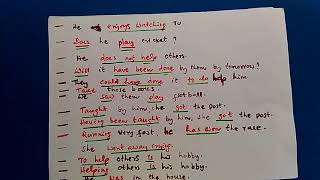 He enjoys watching TV.
Does he play cricket?
He does not help others.
Will it have been done by them by tomorrow?
They could have done it to help him
Take those books.
We saw them play football.
Taught by him, he got the post.
Having been taught by him, she got the post.
Running very fast, he has won the race.
She went away crying.
To help others is his hobby.
Helping others is his hobby.
He was in the house.